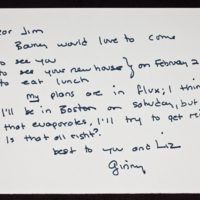 ear Jim
would love to come
to see you
to see your new house } on February 2
to eat lunch
my plans are in flux; I think
I'll be in Boston on Saturday, but
that evaporates, I'll try to get
Is that all right?
best to you and Liz
Ginny